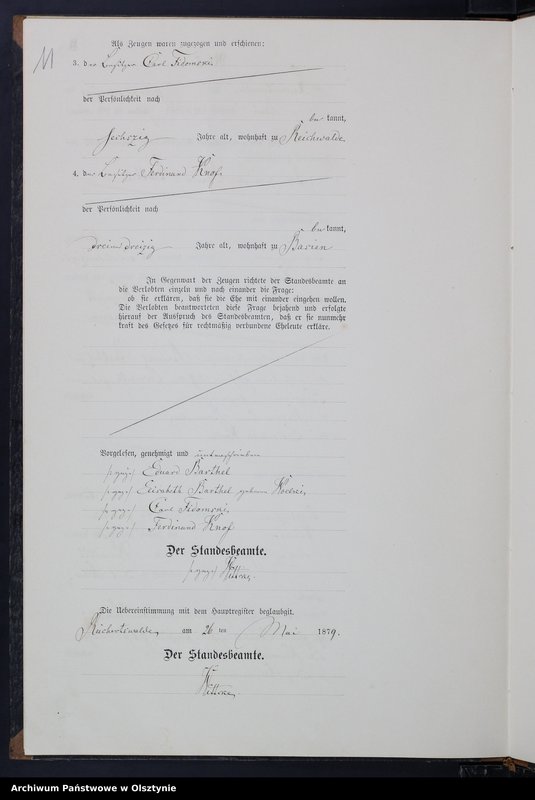 11
Als Zeugen waren zugezogen und erschienen:
3. der Carl Fidomski
der Persönlichkeit nach
bekannt,
sechszig Jahre alt, wohnhaft zu Reichwalde
4. der Ferdinand Knof
der Persönlichkeit nach
bekannt,
dreiunddreizig Jahre alt, wohnhaft zu Barien
In Gegenwart der Zeugen richtete der Standesbeamte an
die Verlobten einzeln und nach einander die Frage:
ob sie erklären, daß sie die Ehe mit einander eingehen wollen.
Die Verlobten beantworteten diese Frage bejahend und erfolgte
hierauf der Ausspruch des Standesbeamten, daß er sie nunmehr
kraft des Gesetzes für rechtmäßig verbundene Eheleute erkläre.
Vorgelesen, genehmigt und unterschrieben
Eduard Barthel
Elisabeth Barthel geborene
Carl Fidomski
Ferdinand Knof
Der Standesbeamte.
Die Uebereinstimmung mit dem Hauptregister beglaubigt.
Rückertswalde, am 26 ten Mai 1879.
Der Standesbeamte.
Archiwum Państwowe w Olsztynie